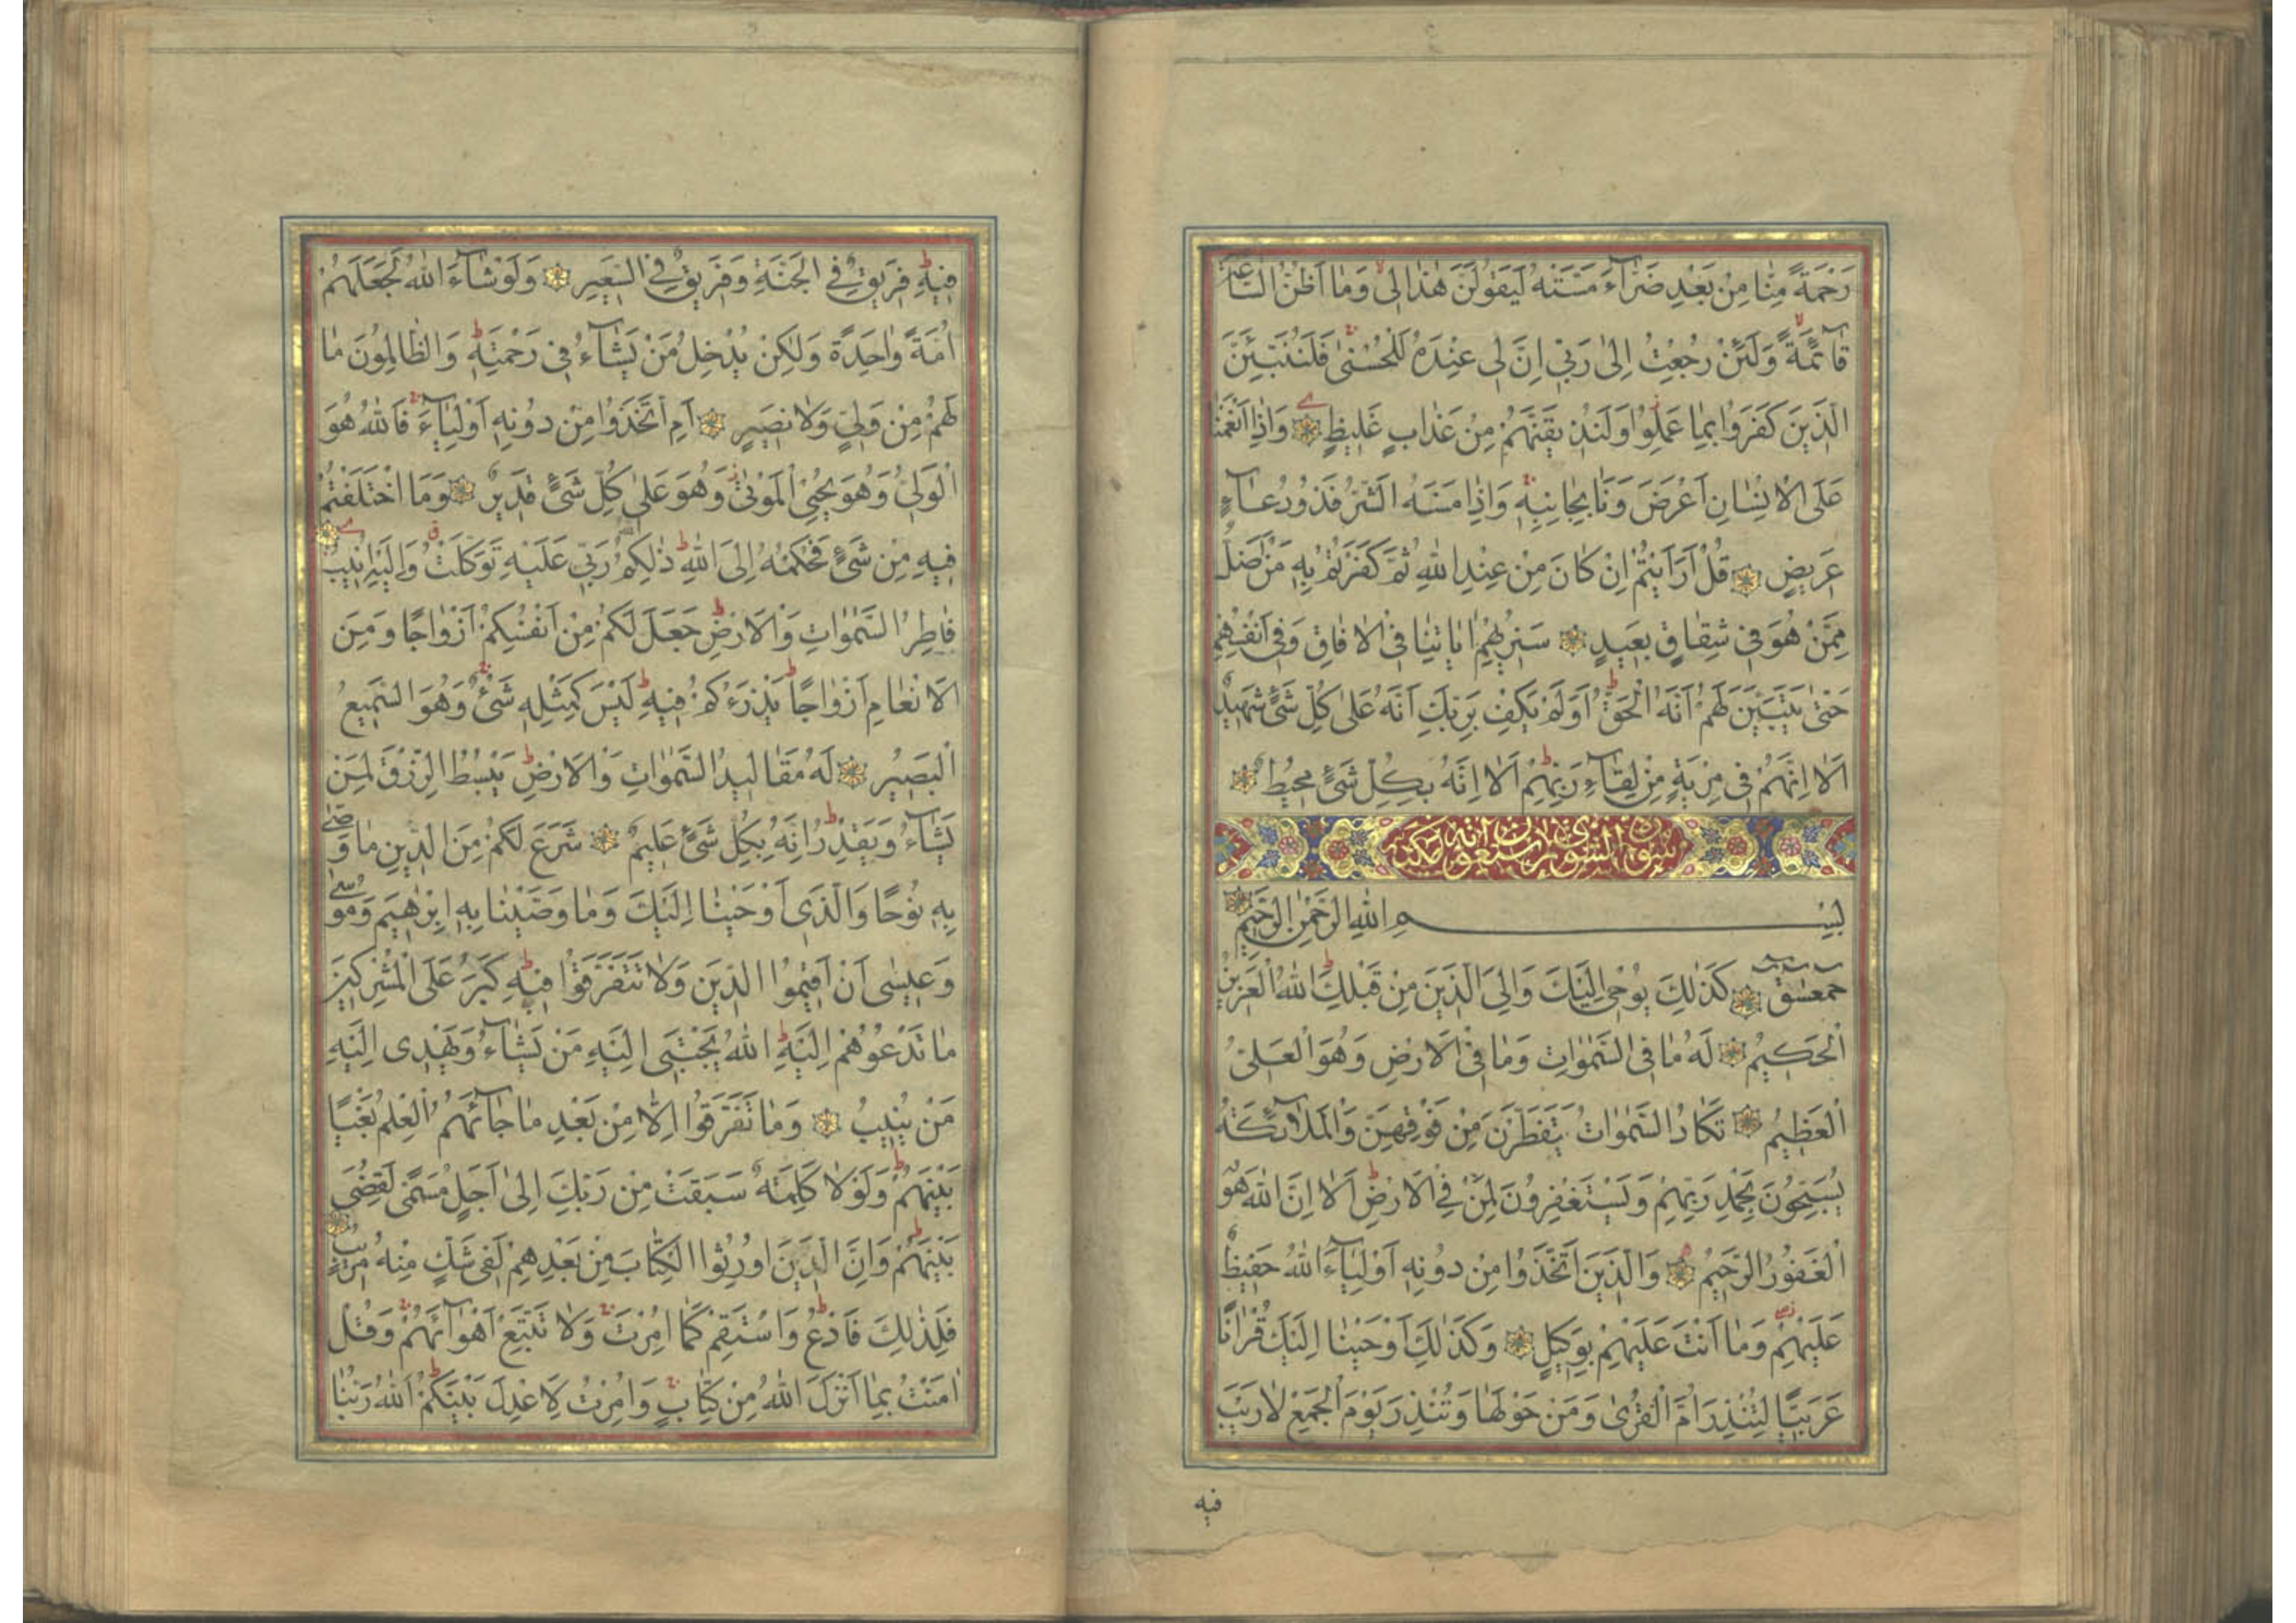 رَحْمَةً مِنَّا مِنْ بَعْدِ ضَرَّآءَ مَسَّتْهُ لَيَقُولَنَّ هٰذَا لِى وَمَا اَظُنُّ السَّاعَةَ
قَآئِمَةً وَلَئِنْ رُجِعْتُ اِلٰى رَبِّى اِنَّ لِى عِنْدَهُ لَلْحُسْنٰى فَلَنُنَبِّئَنَّ
الَّذِينَ كَفَرُوا بِمَا عَمِلُوا وَلَنُذِيقَنَّهُمْ مِنْ عَذَابٍ غَلِيظٍ وَاِذَا اَنْعَمْنَا
عَلَى الْاِنْسَانِ اَعْرَضَ وَنَاٰ بِجَانِبِهِ وَاِذَا مَسَّهُ الشَّرُّ فَذُو دُعَآءٍ
عَرِيضٍ قُلْ اَرَاَيْتُمْ اِنْ كَانَ مِنْ عِنْدِ اللّٰهِ ثُمَّ كَفَرْتُمْ بِهِ مَنْ اَضَلُّ
مِمَّنْ هُوَ فِى شِقَاقٍ بَعِيدٍ سَنُرِيهِمْ اٰيَاتِنَا فِى الْاٰفَاقِ وَفِى اَنْفُسِهِمْ
حَتّٰى يَتَبَيَّنَ لَهُمْ اَنَّهُ الْحَقُّ اَوَلَمْ يَكْفِ بِرَبِّكَ اَنَّهُ عَلٰى كُلِّ شَىْءٍ شَهِيدٌ
اَلَا اِنَّهُمْ فِى مِرْيَةٍ مِنْ لِقَآءِ رَبِّهِمْ اَلَا اِنَّهُ بِكُلِّ شَىْءٍ مُحِيطٌ
سورة الشورى
بِسْمِ اللّٰهِ الرَّحْمٰنِ الرَّحِيمِ
حمعسق كَذٰلِكَ يُوحِى اِلَيْكَ وَاِلَى الَّذِينَ مِنْ قَبْلِكَ اللّٰهُ الْعَزِيزُ
الْحَكِيمُ لَهُ مَا فِى السَّمٰوَاتِ وَمَا فِى الْاَرْضِ وَهُوَ الْعَلِىُّ
الْعَظِيمُ تَكَادُ السَّمٰوَاتُ يَتَفَطَّرْنَ مِنْ فَوْقِهِنَّ وَالْمَلٰٓئِكَةُ
يُسَبِّحُونَ بِحَمْدِ رَبِّهِمْ وَيَسْتَغْفِرُونَ لِمَنْ فِى الْاَرْضِ اَلَا اِنَّ اللّٰهَ هُوَ
الْغَفُورُ الرَّحِيمُ وَالَّذِينَ اتَّخَذُوا مِنْ دُونِهِ اَوْلِيَآءَ اللّٰهُ حَفِيظٌ
عَلَيْهِمْ وَمَا اَنْتَ عَلَيْهِمْ بِوَكِيلٍ وَكَذٰلِكَ اَوْحَيْنَا اِلَيْكَ قُرْاٰنًا
عَرَبِيًّا لِتُنْذِرَ اُمَّ الْقُرٰى وَمَنْ حَوْلَهَا وَتُنْذِرَ يَوْمَ الْجَمْعِ لَا رَيْبَ
فيه
فِيهِ فَرِيقٌ فِى الْجَنَّةِ وَفَرِيقٌ فِى السَّعِيرِ وَلَوْ شَآءَ اللّٰهُ لَجَعَلَهُمْ
اُمَّةً وَاحِدَةً وَلٰكِنْ يُدْخِلُ مَنْ يَشَآءُ فِى رَحْمَتِهِ وَالظَّالِمُونَ مَا
لَهُمْ مِنْ وَلِىٍّ وَلَا نَصِيرٍ اَمِ اتَّخَذُوا مِنْ دُونِهِ اَوْلِيَآءَ فَاللّٰهُ هُوَ
الْوَلِىُّ وَهُوَ يُحْيِى الْمَوْتٰى وَهُوَ عَلٰى كُلِّ شَىْءٍ قَدِيرٌ وَمَا اخْتَلَفْتُمْ
فِيهِ مِنْ شَىْءٍ فَحُكْمُهُ اِلَى اللّٰهِ ذٰلِكُمُ اللّٰهُ رَبِّى عَلَيْهِ تَوَكَّلْتُ وَاِلَيْهِ اُنِيبُ
فَاطِرُ السَّمٰوَاتِ وَالْاَرْضِ جَعَلَ لَكُمْ مِنْ اَنْفُسِكُمْ اَزْوَاجًا وَمِنَ
الْاَنْعَامِ اَزْوَاجًا يَذْرَؤُكُمْ فِيهِ لَيْسَ كَمِثْلِهِ شَىْءٌ وَهُوَ السَّمِيعُ
الْبَصِيرُ لَهُ مَقَالِيدُ السَّمٰوَاتِ وَالْاَرْضِ يَبْسُطُ الرِّزْقَ لِمَنْ
يَشَآءُ وَيَقْدِرُ اِنَّهُ بِكُلِّ شَىْءٍ عَلِيمٌ شَرَعَ لَكُمْ مِنَ الدِّينِ مَا وَصّٰى
بِهِ نُوحًا وَالَّذِى اَوْحَيْنَا اِلَيْكَ وَمَا وَصَّيْنَا بِهِ اِبْرٰهِيمَ وَمُوسٰى
وَعِيسٰى اَنْ اَقِيمُوا الدِّينَ وَلَا تَتَفَرَّقُوا فِيهِ كَبُرَ عَلَى الْمُشْرِكِينَ
مَا تَدْعُوهُمْ اِلَيْهِ اللّٰهُ يَجْتَبِى اِلَيْهِ مَنْ يَشَآءُ وَيَهْدِى اِلَيْهِ
مَنْ يُنِيبُ وَمَا تَفَرَّقُوا اِلَّا مِنْ بَعْدِ مَا جَآئَهُمُ الْعِلْمُ بَغْيًا
بَيْنَهُمْ وَلَوْلَا كَلِمَةٌ سَبَقَتْ مِنْ رَبِّكَ اِلٰى اَجَلٍ مُسَمًّى لَقُضِىَ
بَيْنَهُمْ وَاِنَّ الَّذِينَ اُورِثُوا الْكِتَابَ مِنْ بَعْدِهِمْ لَفِى شَكٍّ مِنْهُ مُرِيبٍ
فَلِذٰلِكَ فَادْعُ وَاسْتَقِمْ كَمَا اُمِرْتَ وَلَا تَتَّبِعْ اَهْوَآئَهُمْ وَقُلْ
اٰمَنْتُ بِمَا اَنْزَلَ اللّٰهُ مِنْ كِتَابٍ وَاُمِرْتُ لِاَعْدِلَ بَيْنَكُمْ اللّٰهُ رَبُّنَا